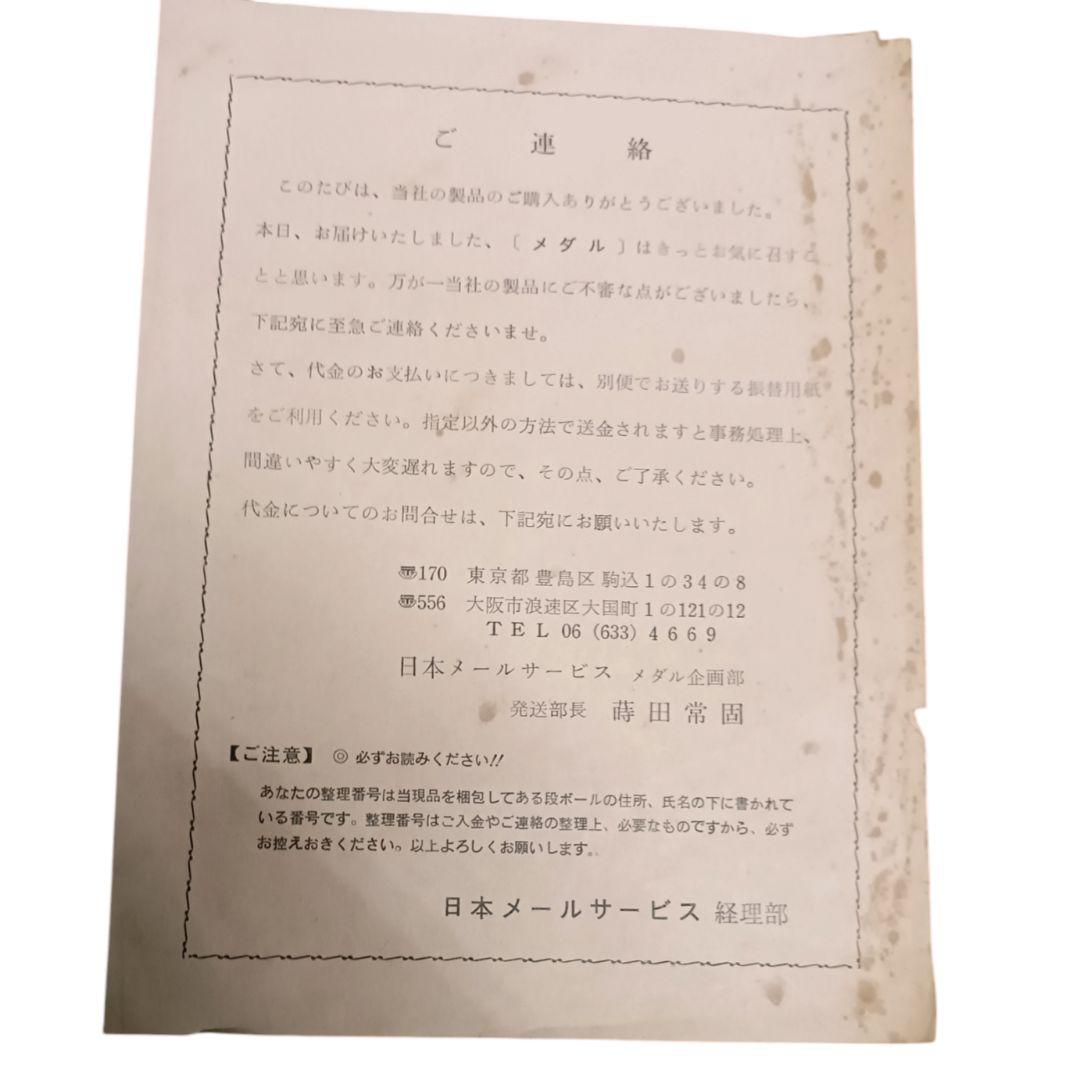 ご連絡
このたびは、当社の製品のご購入ありがとうございました。
本日、お届けいたしました、〔メダル〕はきっとお気に召すこ
とと思います。万が一当社の製品にご不審な点がございましたら、
下記宛に至急ご連絡くださいませ。
さて、代金のお支払いにつきましては、別便でお送りする振替用紙
をご利用ください。指定以外の方法で送金されますと事務処理上、
間違いやすく大変遅れますので、その点、ご了承ください。
代金についてのお問合せは、下記宛にお願いいたします。
〠170 東京都豊島区駒込1の34の8
〠556 大阪市浪速区大国町1の121の12
TEL 06 (633) 4669
日本メールサービス メダル企画部
発送部長 蒔田常固
【ご注意】 ◎ 必ずお読みください!!
あなたの整理番号は当現品を梱包してある段ボールの住所、氏名の下に書かれて
いる番号です。整理番号はご入金やご連絡の整理上、必要なものですから、必ず
お控えおきください。以上よろしくお願いします。
日本メールサービス 経理部